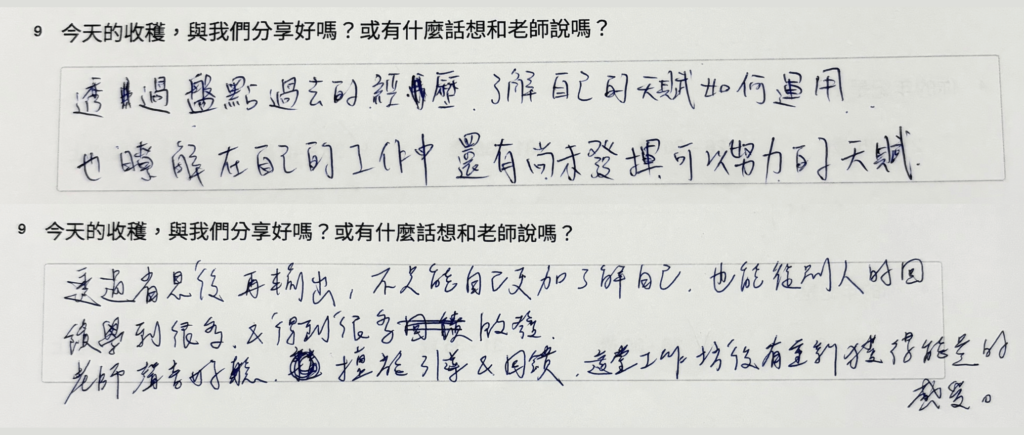 9 今天的收穫，與我們分享好嗎？或有什麼話想和老師說嗎？
透過盤點過去的經歷，了解自己的天賦如何運用
也瞭解在自己的工作中 還有尚未發揮可以努力的天賦.
9 今天的收穫，與我們分享好嗎？或有什麼話想和老師說嗎？
透過省思後再輸出，不只能自己更加了解自己，也能從別人的回
饋學到很多，&"得到"很多啟發.
老師聲音好聽. 擅於引導&回饋，這堂工作坊後有重新獲得能量的
感受。